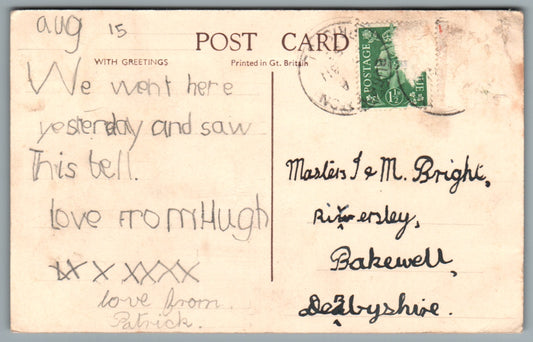 aug 15
POST CARD
WITH GREETINGS
Printed in Gt. Britain
We went here
yesterday and saw
This bell.
love from Hugh
xx x xxxx
love from
Patrick.
POSTAGE
1½
Masters J & M. Bright,
Bakewell,
Derbyshire.